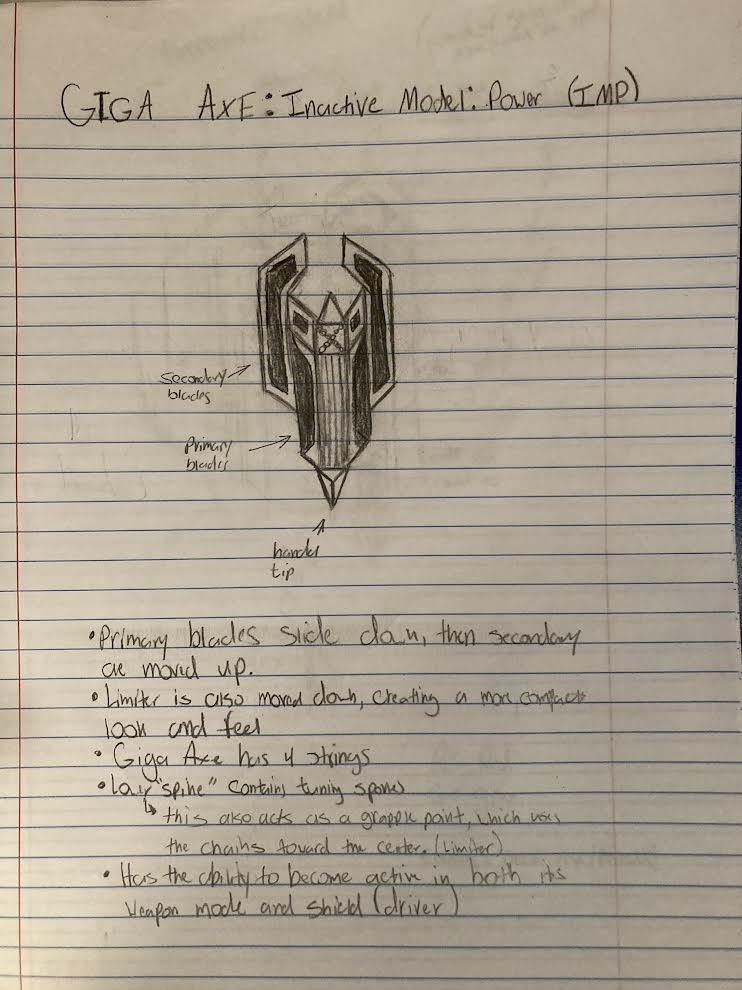 GIGA AXE: Inactive Model: Power (IMP)
Secondary
blades
Primary
blades
handle
tip
• Primary blades slide down, then secondary
are moved up.
• Limiter is also moved down, creating a more compact
look and feel
• Giga Axe has 4 strings
• "spine" contains tuning
this also acts as a grapple point, which uses
the chains toward the center. (Limiter)
• Has the ability to become active in both its
Weapon mode and shield (driver)